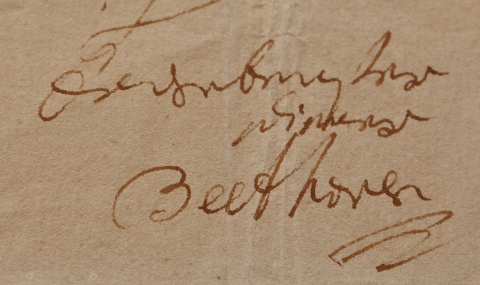 Ergebenster
Diener
Beethoven